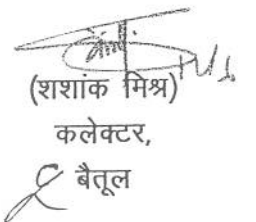 (शशांक मिश्र)
कलेक्टर,
बैतूल